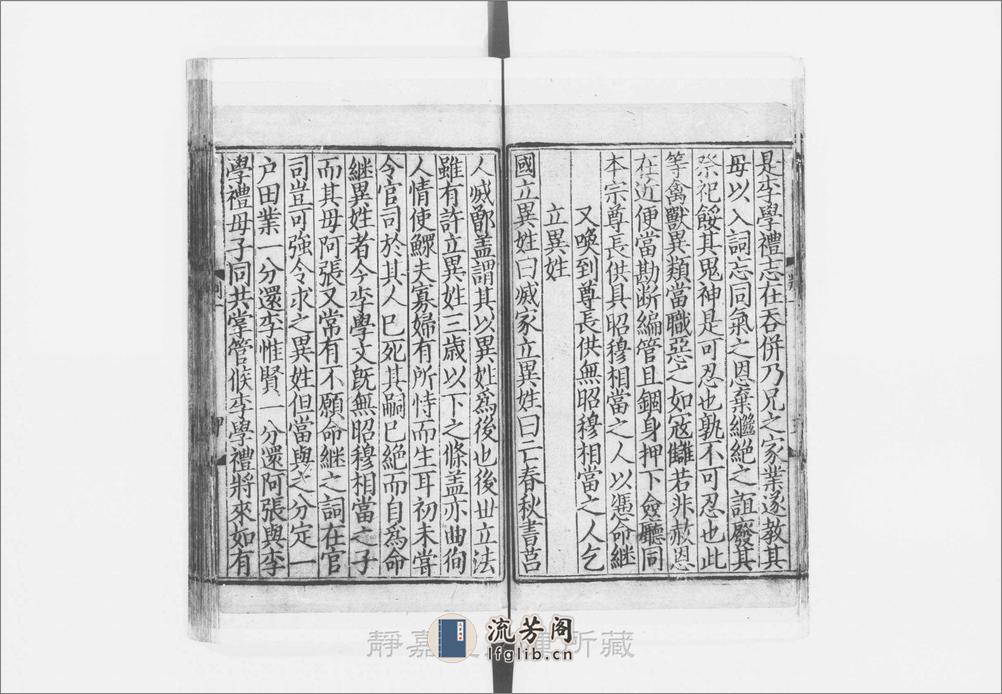 是李學禮志在吞併乃兄之家業遂教其
母以入詞忘同氣之恩棄繼絶之誼廢其
祭祀餒其鬼神是可忍也孰不可忍也此
等禽獸異類當職惡之如寇讎若非赦恩
在近便當勘断編管且錮身押下僉聽同
本宗尊長供具昭穆相當之人以憑命継
又喚到尊長供無昭穆相當之人乞
立異姓
國立異姓曰滅家立異姓曰亡春秋書莒
人滅鄫盖謂其以異姓爲後也後丗立法
雖有許立異姓三歳以下之條盖亦曲徇
人情使鰥夫寡婦有所恃而生耳初未甞
令官司於其人已死其嗣已絶而自爲命
継異姓者今李學文旣無昭穆相當之子
而其母阿張又常有不願命継之詞在官
司豈可強令求之異姓但當與之分定一
户田業一分還李惟賢一分還阿張與李
學禮母子同共掌管候李學禮將來如有
靜嘉 所藏
流芳阁
lfglib.cn